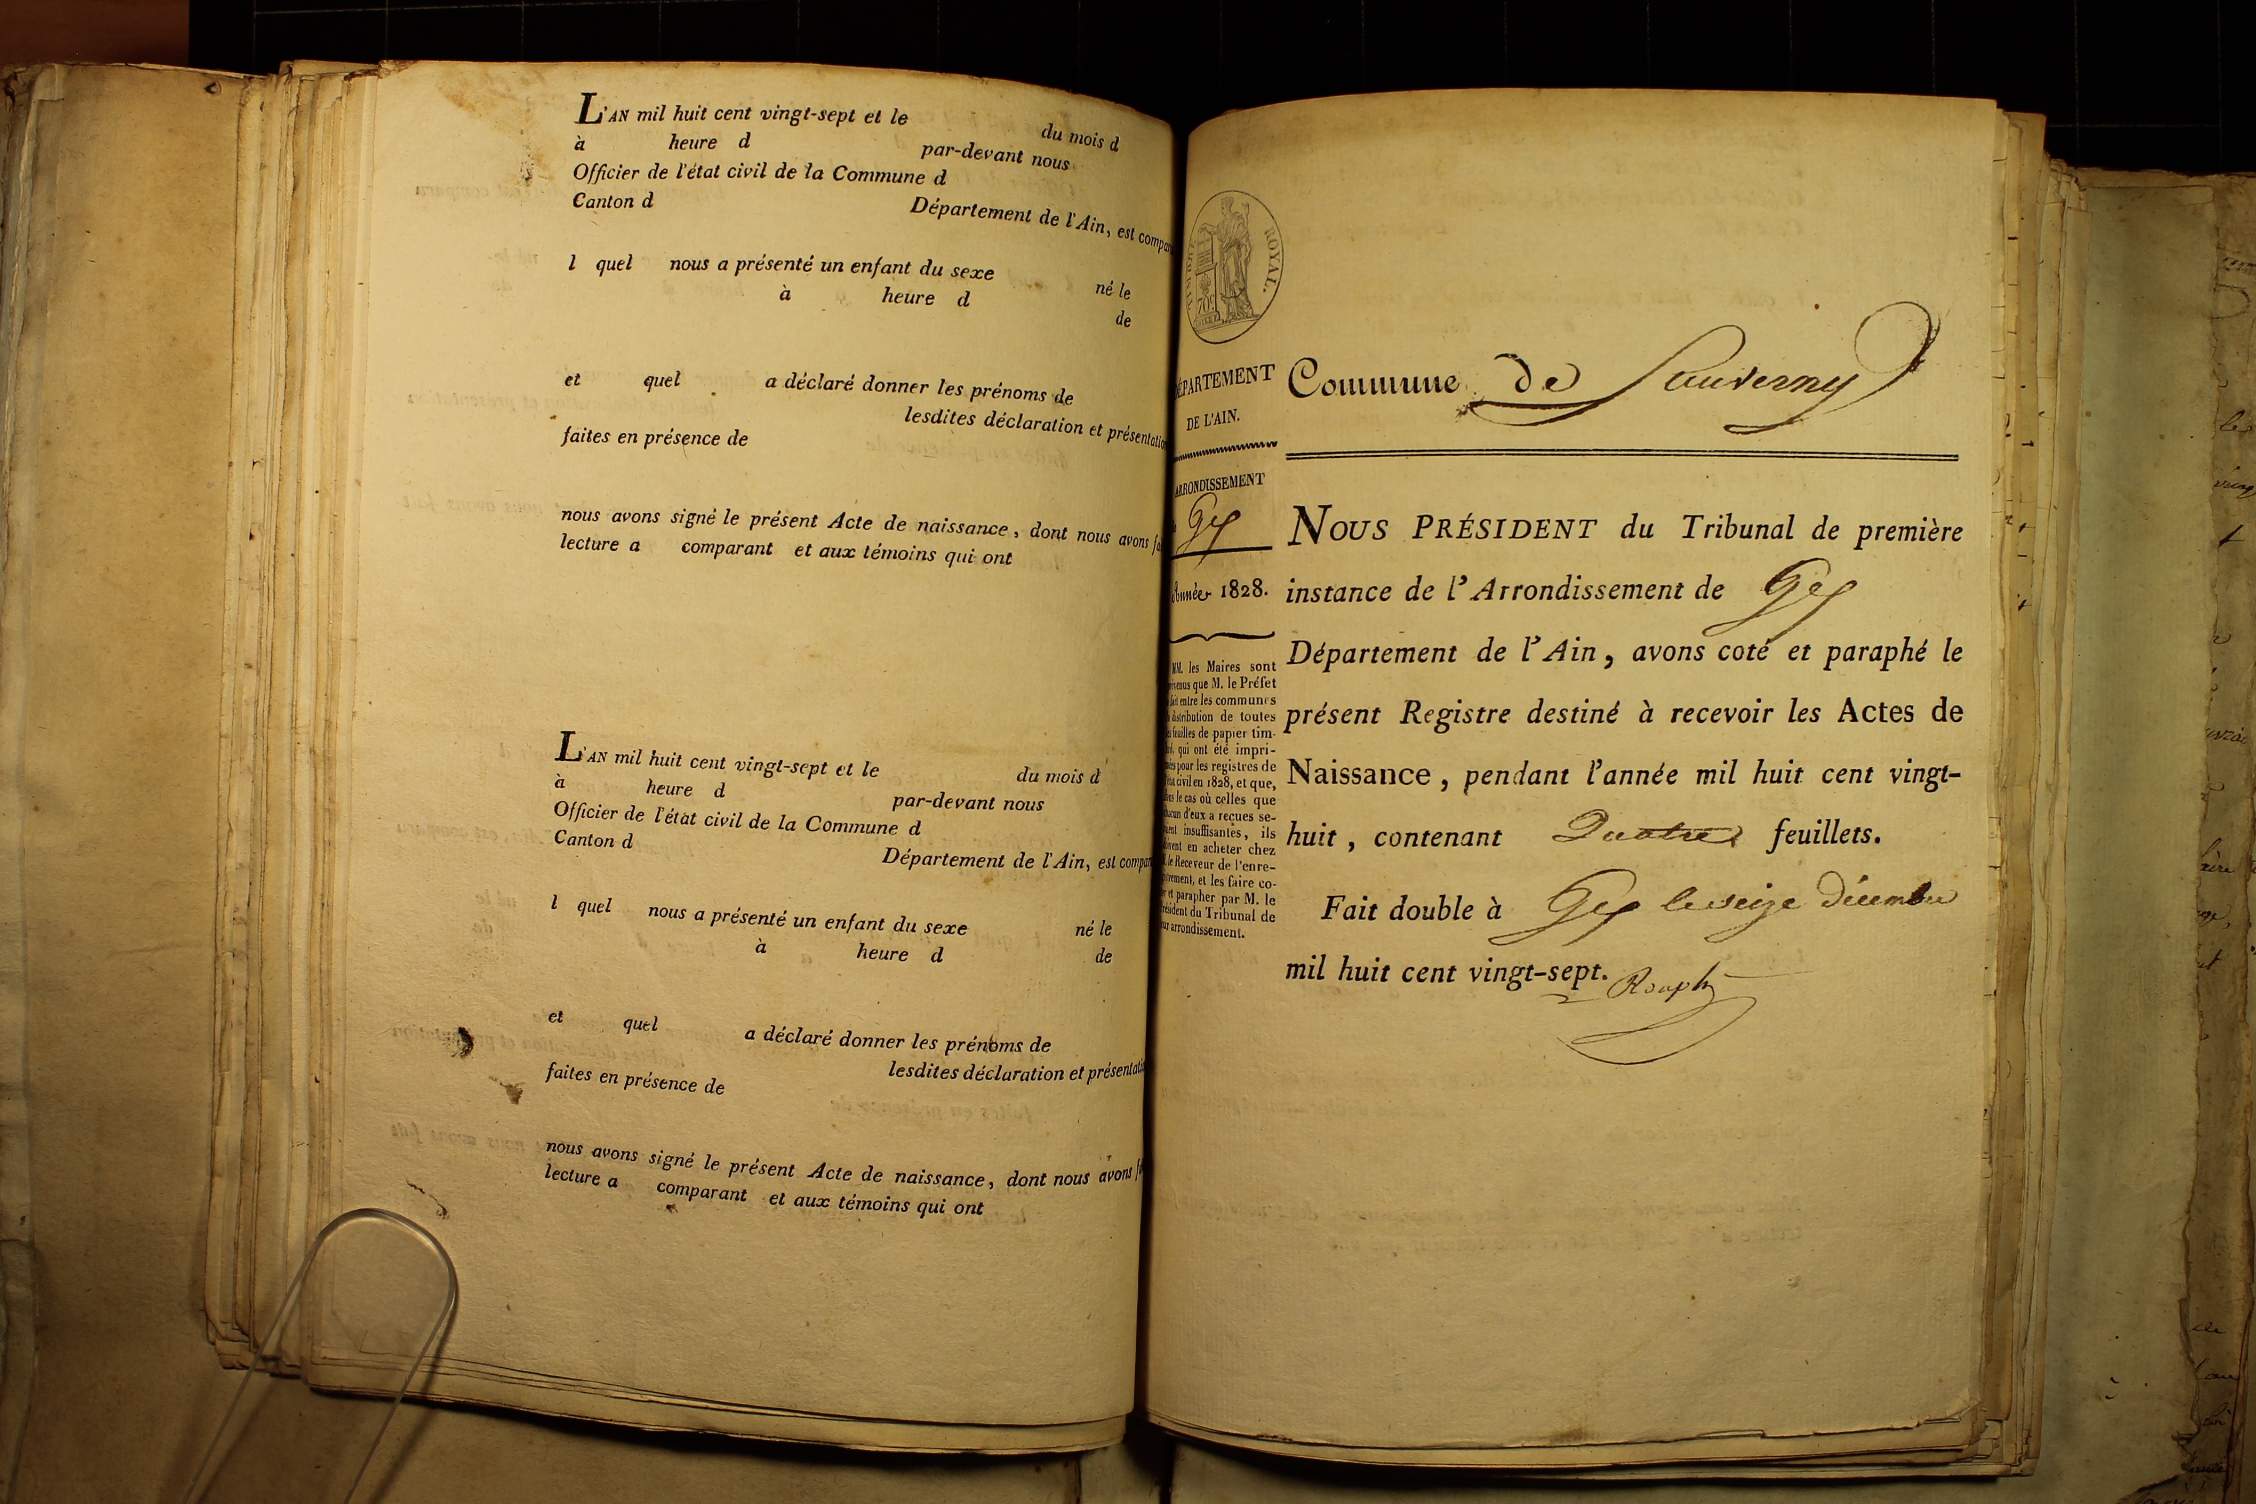 L'AN mil huit cent vingt-sept et le du mois d
à heure d par-devant nous
Officier de l'état civil de la Commune d
Canton d Département de l'Ain, est compar
l quel nous a présenté un enfant du sexe né le
à heure d de
et quel a déclaré donner les prénoms de
lesdites déclaration et présentation
faites en présence de
nous avons signé le présent Acte de naissance, dont nous avons fa
lecture a comparant et aux témoins qui ont
L'AN mil huit cent vingt-sept et le du mois d
à heure d par-devant nous
Officier de l'état civil de la Commune d
Canton d Département de l'Ain, est compar
l quel nous a présenté un enfant du sexe né le
à heure d de
et quel a déclaré donner les prénoms de
lesdites déclaration et présentati
faites en présence de
nous avons signé le présent Acte de naissance, dont nous avons f
lecture a comparant et aux témoins qui ont
TIMBRE ROYAL.
DÉPARTEMENT
DE L'AIN.
ARRONDISSEMENT
Gex
Année 1828.
MM. les Maires sont
venus que M. le Préfet
fait entre les communes
distribution de toutes
feuilles de papier tim-
qui ont été impri-
pour les registres de
civil en 1828, et que,
le cas où celles que
d'eux a reçues se-
insuffisantes, ils
en acheter chez
le Receveur de l'enre-
et les faire co-
et parapher par M. le
du Tribunal de
arrondissement.
Commune de Sauverny
NOUS PRÉSIDENT du Tribunal de première
instance de l'Arrondissement de Gex
Département de l'Ain, avons coté et paraphé le
présent Registre destiné à recevoir les Actes de
Naissance, pendant l'année mil huit cent vingt-
huit, contenant Quatre feuillets.
Fait double à Gex le seize Décembre
mil huit cent vingt-sept.